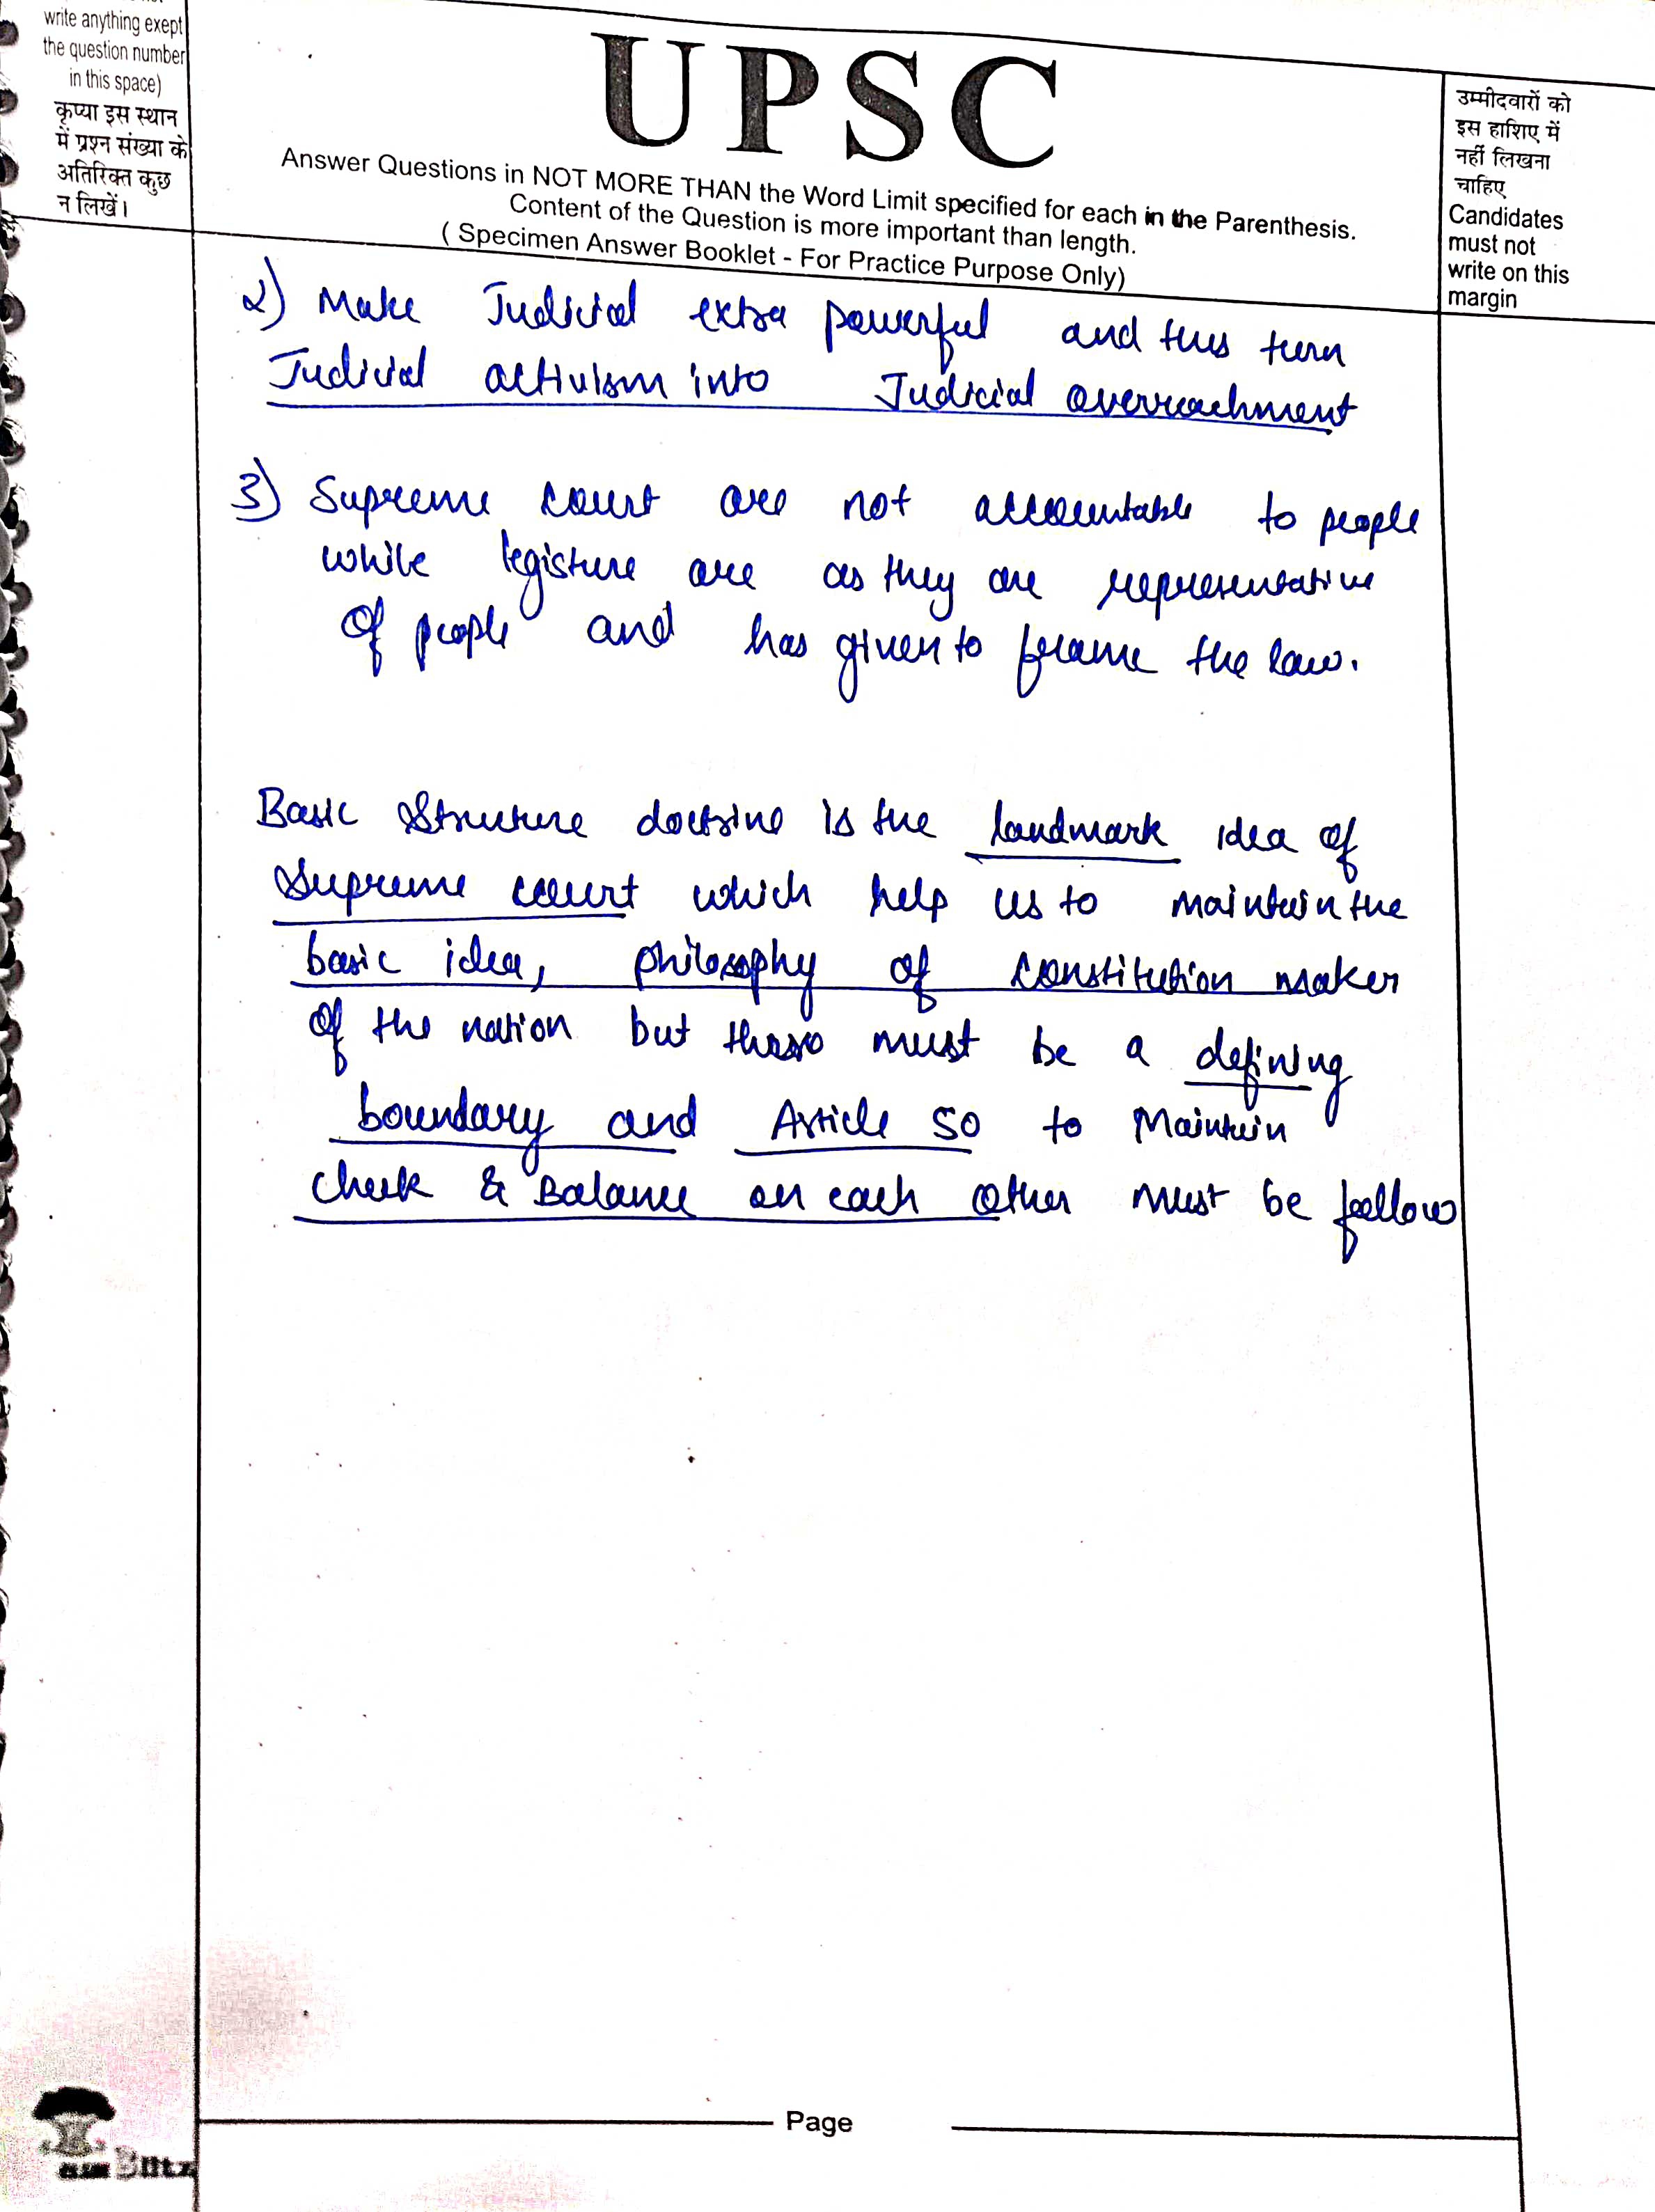 write anything exept
the question number
in this space)
कृप्या इस स्थान
में प्रश्न संख्या के
अतिरिक्त कुछ
न लिखें।
UPSC
Answer Questions in NOT MORE THAN the Word Limit specified for each in the Parenthesis.
Content of the Question is more important than length.
( Specimen Answer Booklet - For Practice Purpose Only)
उम्मीदवारों को
इस हाशिए में
नहीं लिखना
चाहिए
Candidates
must not
write on this
margin
2) Make Judicial extra powerful and thus turn
Judicial activism into Judicial overreachment
3) Supreme court are not accountable to people
while legisture are as they are representative
of people and has given to frame the law.
Basic Structure doctrine is the landmark idea of
Supreme court which help us to maintain the
basic idea, philosophy of constitution maker
of the nation but there must be a defining
boundary and Article 50 to Maintain
check & Balance on each other must be follow
Page
Blitz